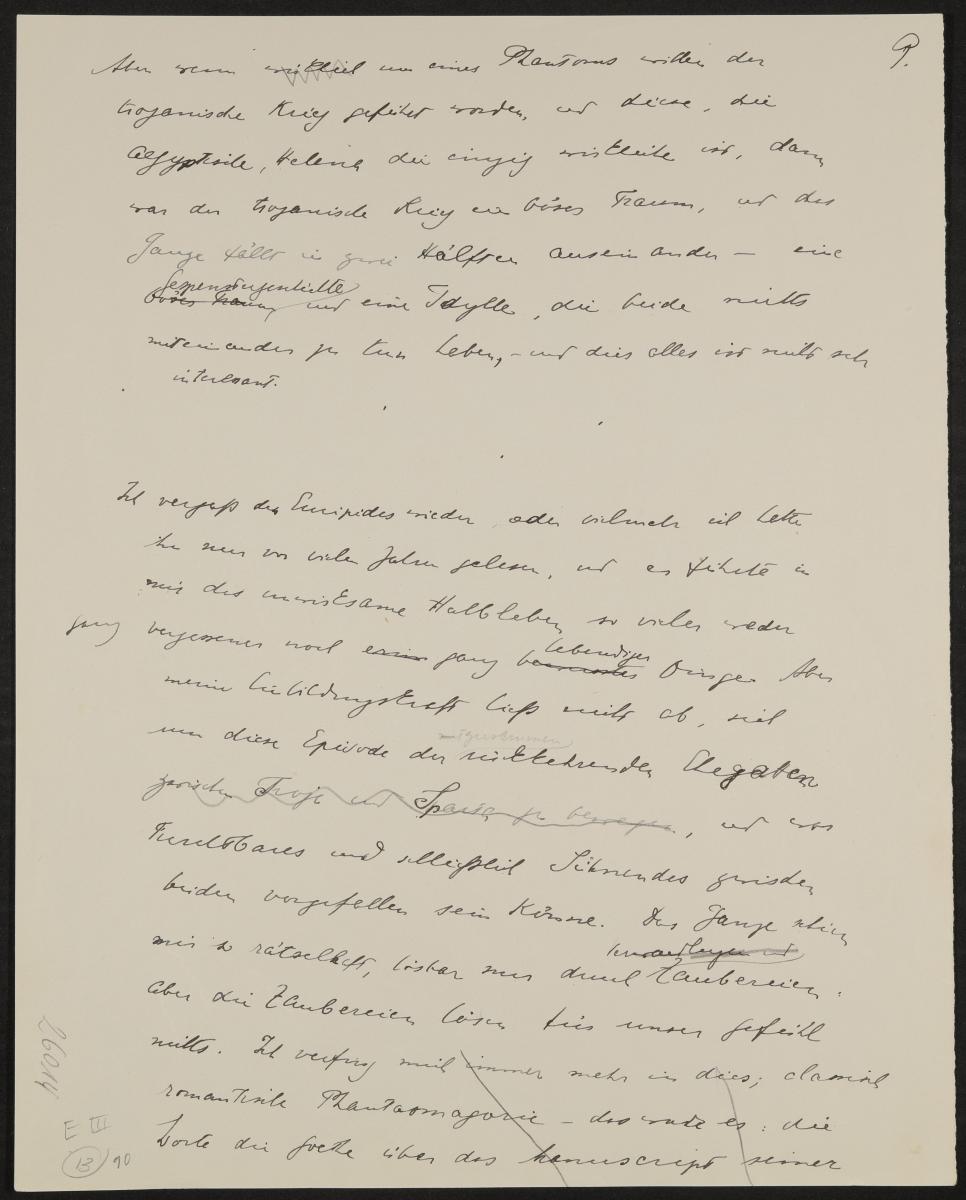 9.
Aber wenn wirklich um eines Phantoms willen der
trojanische Krieg geführt worden, und diese, die
aegyptische, Helena die einzig wirkliche ist, dann
war der trojanische Krieg ein böses Traum, und das
Ganze fällt in zwei Hälften auseinander – eine
Gespenstergeschichte
böser Traum und eine Idylle, die beide nichts
miteinander zu tun haben, – und dies alles ist nicht sehr
interessant.
Ich vergaß den Euripides wieder, oder vielmehr ich hatte
ihn nur vor vielen Jahren gelesen, und es führte in
mir das unwirksame Halbleben so vieler weder
ganz vergessener noch ganz lebendiger Dinge. Aber
meine Einbildungskraft ließ nicht ab, sich
um diese Episode der rückkehrenden Ehegatten
zwischen Troja und Sparta zu bewegen, und was
Furchtbares und schließlich Sühnendes zwischen
beiden vorgefallen sein könne. Das Ganze schien
mir so rätselhaft, lösbar nur durch Zaubereien:
aber die Zaubereien lösen für unser gefühl
nichts. Ich verfing mich immer mehr in dies; classisch
romantische Phantasmagorie – das wurde es: die
Worte die Goethe über das Manuscript seiner
26014
E III
13 90